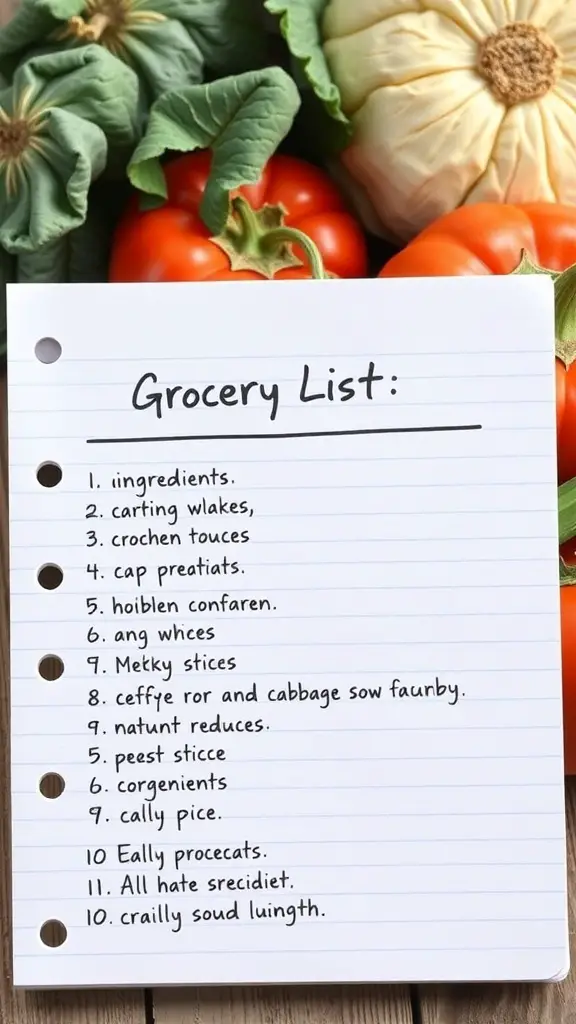 Grocery List:
1. iingredients.
2. carting wlakes,
3. crochen touces
4. cap preatiats.
5. hoiblen confaren.
6. ang whices
9. Mekky stices
8. ceffye ror and cabbage sow faunby.
9. natunt reduces.
5. peest sticce
6. corgenients
9. cally pice.
10 Eally procecats.
11. All hate srecidiet.
10. crailly soud luingth.